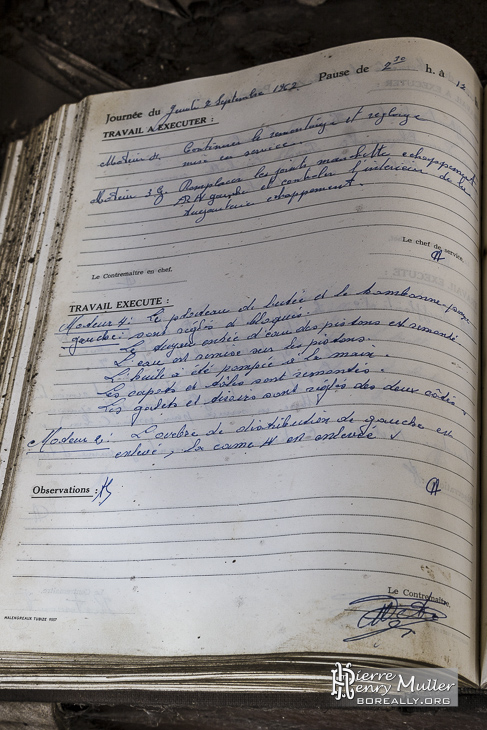 Journée du Jeudi 2 Septembre 1962 Pause de 2 30 h. à 12
TRAVAIL A EXECUTER :
Moteur 4. Continuer le remontage et reglage
mise en service.
Moteur 3 G. Remplacer les joints manchette echappement
A4 gauche et controler l'intérieur de la
tuyauterie echappement.
Le chef de service.
Le Contremaître en chef.
TRAVAIL EXECUTE :
Moteur 4: Le plateau de butée et le bonbonne-pompe
gauche sont réglés et bloqués.
Le tuyau entrée d'eau des pistons est remonté
L'eau est remise sur les pistons.
L'huile a été pompée à la main.
Les capots et tôles sont remontés.
Les galets et ressorts sont réglés des deux côtés.
Moteur 2: L'arbre de distribution de gauche est
enlevé, la came 4 est enlevée
Observations :
Le Contremaître.
MALENGREAUX TUBIZE
Pierre
Henry Muller
BOREALLY.ORG